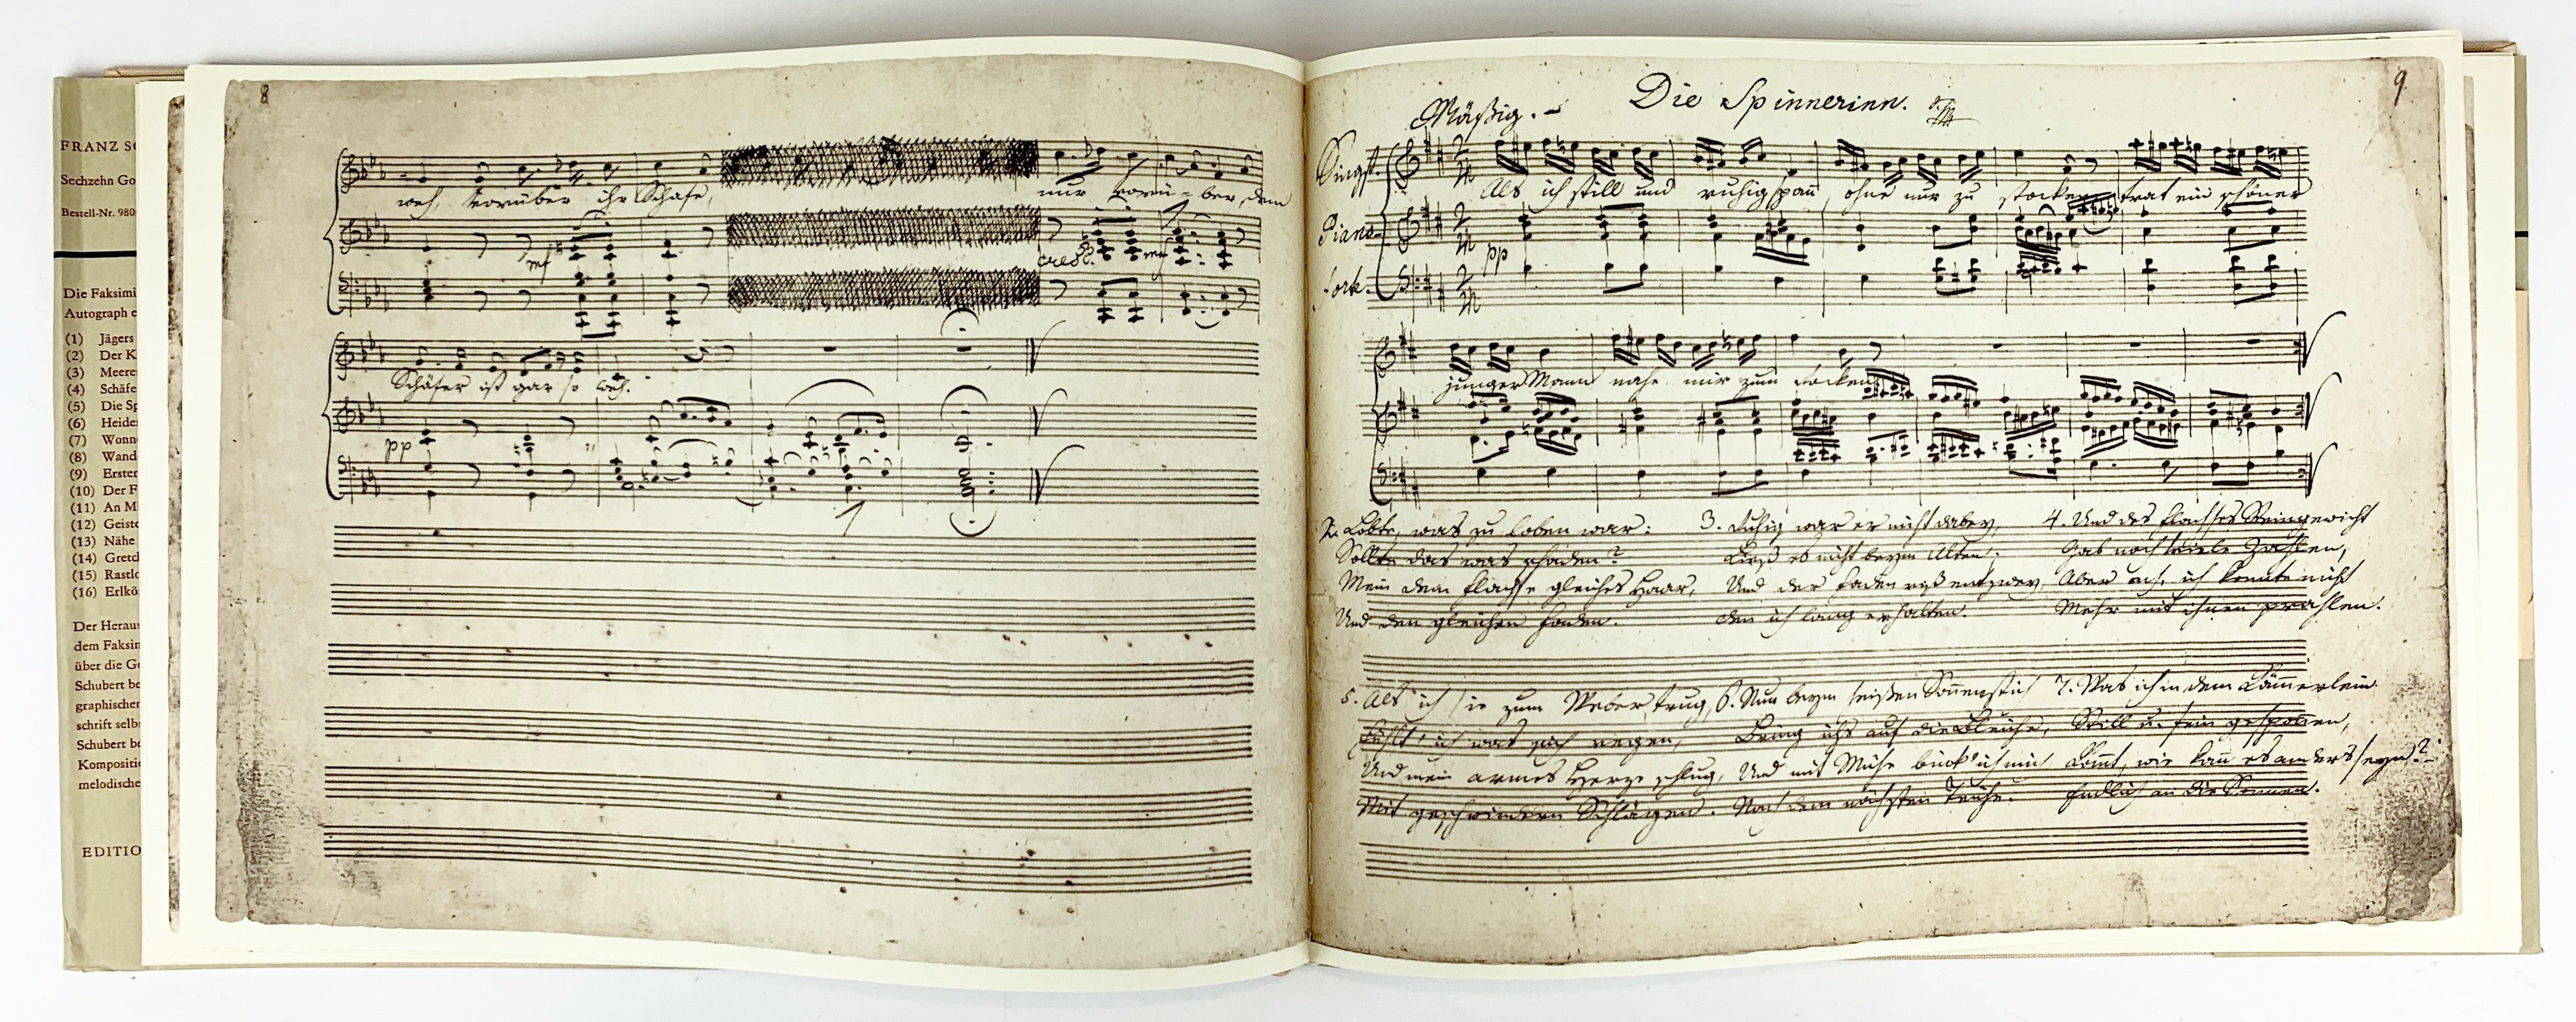 FRANZ SC
Sechzehn Go
Bestell-Nr. 980
Die Faksimi
Autograph e
(1) Jägers
(2) Der K
(3) Meere
(4) Schäfe
(5) Die Sp
(6) Heide
(7) Wonn
(8) Wand
(9) Erster
(10) Der F
(11) An M
(12) Geiste
(13) Nähe
(14) Gretch
(15) Rastlo
(16) Erlkö
Der Heraus
dem Faksim
über die Ge
Schubert be
graphischer
schrift selb
Schubert be
Kompositio
melodische
EDITIO
8
weh, vorüber ihr Schafe,
nur vorü-ber, dem
mf
cresc.
mf
Schäfer ist gar so weh.
pp
9
Die Spinnerinn.
Mäßig.
Singst.
Als ich still und ruhig spann, ohne nur zu stocken, trat ein schöner
Piano-
pp
forte.
junger Mann nahe mir zum Rocken.
2. Lobte, was zu loben war:
Sollte das was schaden?
Mein dem Flachse gleiches Haar,
Und den gleichen Faden.
3. Ruhig war er nicht dabey,
Ließ es nicht beym Alten;
Und der Faden riß entzwey,
den ich lang erhalten.
4. Und des Flachses Steingewicht
Gab noch viele Zahlen,
Aber ach, ich konnte nicht
Mehr mit ihnen prahlen.
5. Als ich sie zum Weber trug,
Fühlt' ich was sich regen,
Und mein armes Herze schlug,
Mit geschwindern Schlägen.
6. Nun beym heißen Sonnenstich
Bring ichs auf die Bleiche,
Und mit Mühe bück' ich mich
Nach dem nächsten Teiche.
7. Was ich in dem Kämmerlein
Still u. fein gesponnen,
Kommt, wie kann es anders seyn?
Endlich an die Sonnen.